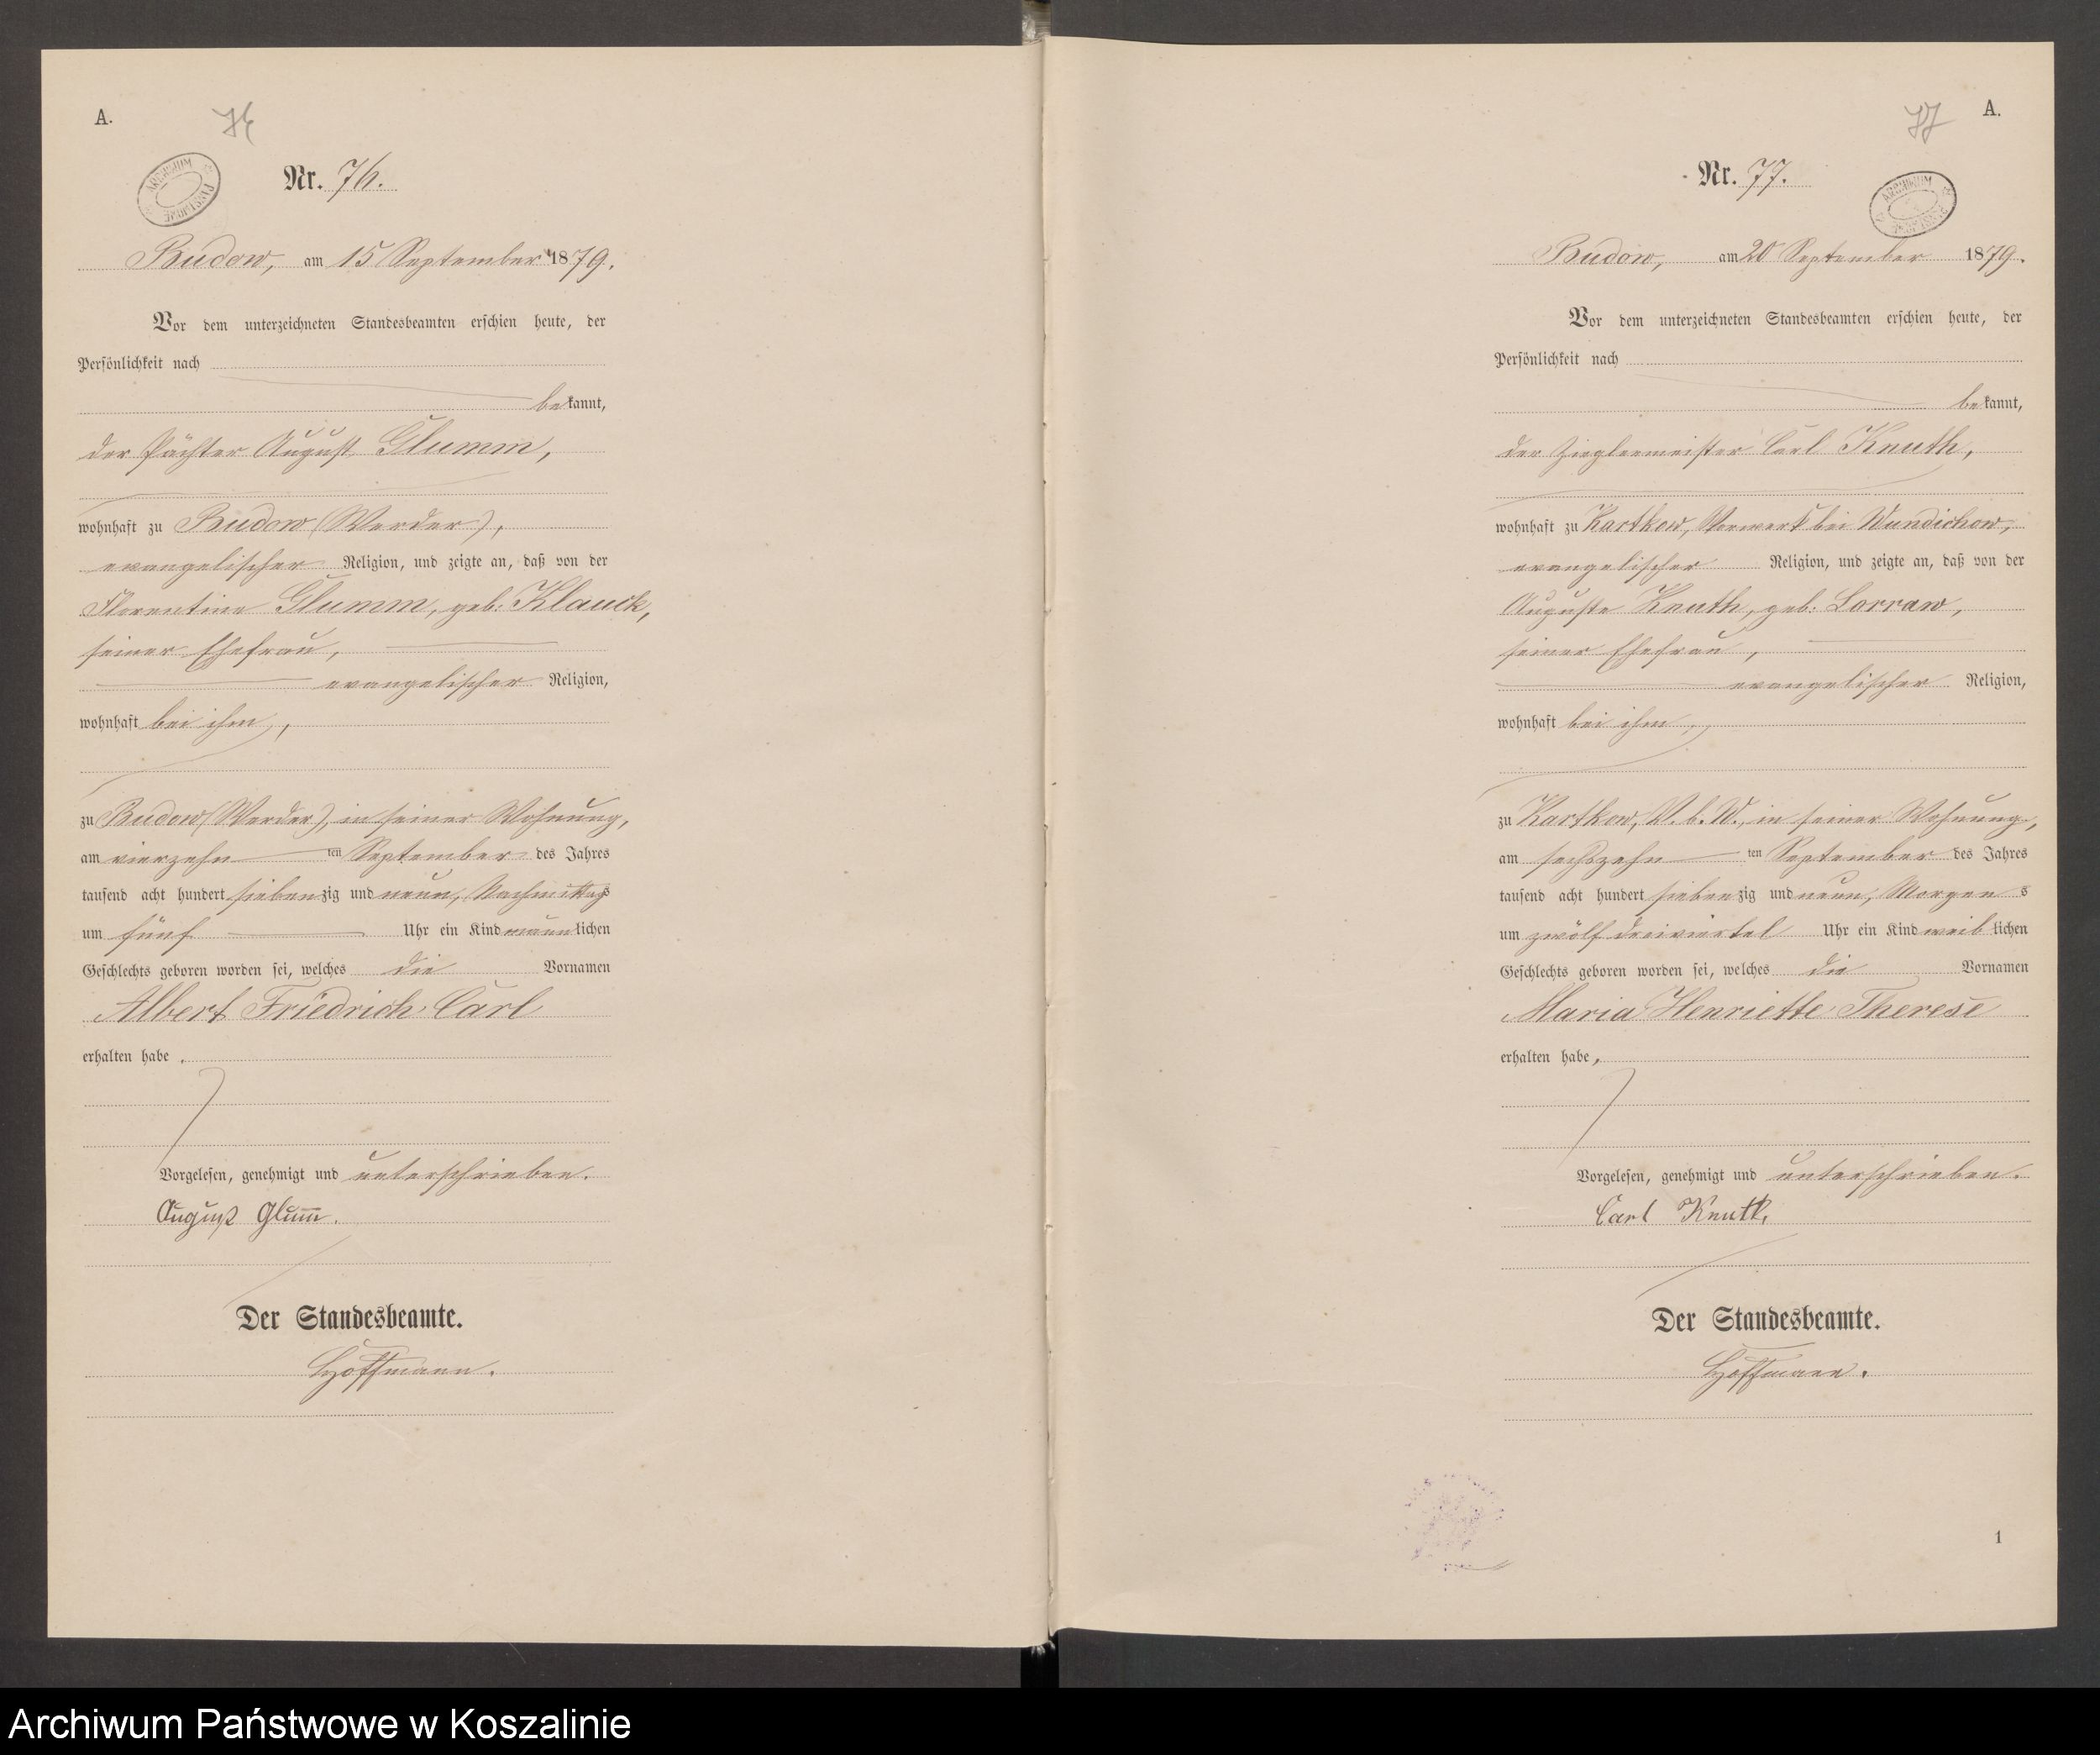 A.
76
ARCHIWUM PAŃSTWOWE
Nr. 76.
Budow, am 15 September 1879.
Vor dem unterzeichneten Standesbeamten erschien heute, der
Persönlichkeit nach
bekannt,
der Pächter August Glumm,
wohnhaft zu Budow (Werder),
evangelischer Religion, und zeigte an, daß von der
Florentine Glumm, geb: Klauck,
seiner Ehefrau,
evangelischer Religion,
wohnhaft bei ihm,
zu Budow (Werder), in seiner Wohnung,
am vierzehn ten September des Jahres
tausend acht hundert siebenzig und neun, Nachmittags
um fünf Uhr ein Kind männlichen
Geschlechts geboren worden sei, welches die Vornamen
Albert Friedrich Carl
erhalten habe.
Vorgelesen, genehmigt und unterschrieben.
August Glum̅.
Der Standesbeamte.
Hoffmann.
77
A.
Nr. 77.
ARCHIWUM PAŃSTWOWE
Budow, am 20 September 1879.
Vor dem unterzeichneten Standesbeamten erschien heute, der
Persönlichkeit nach
bekannt,
der Zieglermeister Carl Knuth,
wohnhaft zu Kartkow, Vorwerk bei Wundichow,
evangelischer Religion, und zeigte an, daß von der
Auguste Knuth, geb: Lorraw,
seiner Ehefrau,
evangelischer Religion,
wohnhaft bei ihm,
zu Kartkow, V. b. W., in seiner Wohnung,
am sechszehn ten September des Jahres
tausend acht hundert siebenzig und neun, Morgens
um zwölf dreiviertel Uhr ein Kind weiblichen
Geschlechts geboren worden sei, welches die Vornamen
Maria Henriette Therese
erhalten habe,
Vorgelesen, genehmigt und unterschrieben.
Carl Knuth,
Der Standesbeamte.
Hoffmann.
1
Archiwum Państwowe w Koszalinie